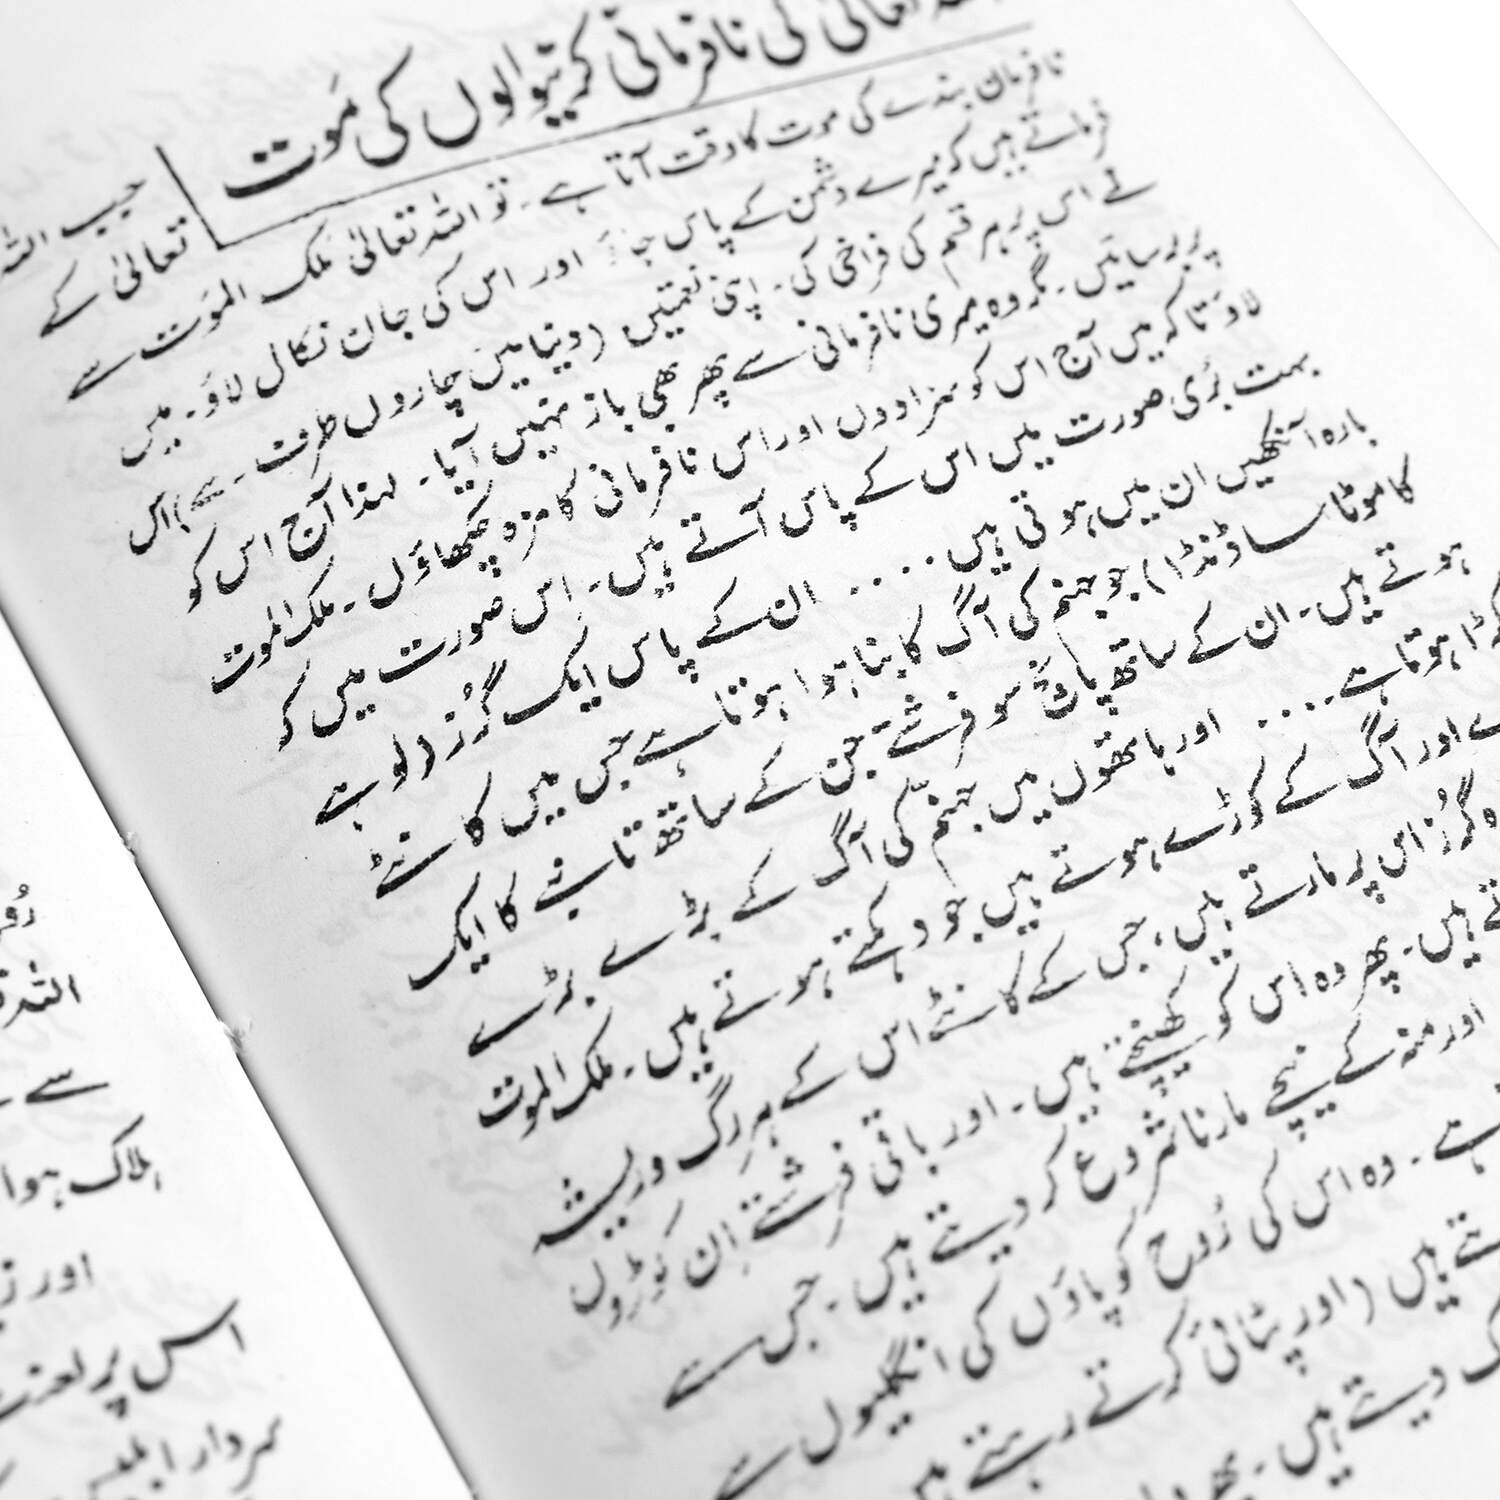 اللہ تعالیٰ کی نافرمانی کرنیوالوں کی مَوت
حبیب اللہ تعالیٰ کے
نافرمان بندے کی موت کا وقت آتا ہے۔ تو اللہ تعالیٰ مَلک المَوت سے
فرماتے ہیں کہ میرے دشمن کے پاس جاؤ اور اس کی جان نکال لاؤ۔ میں
نے اس پر ہر قسم کی فراخی کی۔ اپنی نعمتیں (دنیا میں چاروں طرف سے) اس
پر برسائیں۔ مگر وہ میری نافرمانی سے پھر بھی باز نہیں آیا۔ لہذا آج اس کو
لاؤ تاکہ میں آج اس کو سزا دوں اور اس نافرمانی کا مزہ چکھاؤں۔ ملک الموت
بہت بُری صورت میں اس کے پاس آتے ہیں۔ اس صورت میں کہ
بارہ آنکھیں ان میں ہوتی ہیں.... ان کے پاس ایک گُرز (لوہے
کا موٹا سا ڈنڈا) جو جہنم کی آگ کا بنا ہوا ہوتا ہے جس میں کانٹے
ہوتے ہیں۔ ان کے ساتھ پانچ سو فرشتے جن کے ساتھ تانبے کا ایک
ہوتا ہے.... اور ہاتھوں میں جہنم کی آگ کے بڑے بڑے
اور آگ کے کوڑے ہوتے ہیں جو دہکتے ہوتے ہیں۔ ملک الموت
گُرز اس پر مارتے ہیں، جس کے کانٹے اس کے ہر رگ و ریشہ
ہیں۔ پھر وہ اس کو کھینچتے ہیں۔ اور باقی فرشتے اِن کوڑوں
اور منہ کے نیچے مارنا شروع کر دیتے ہیں۔ جس سے
ہے۔ وہ اس کی رُوح کو پاؤں کی انگلیوں سے
ہیں (اور پٹائی کرتے رہتے ہیں
دیتے ہیں۔
سے
ہلاک ہوا
اور
اس پر لعنت
سردار ابلیس